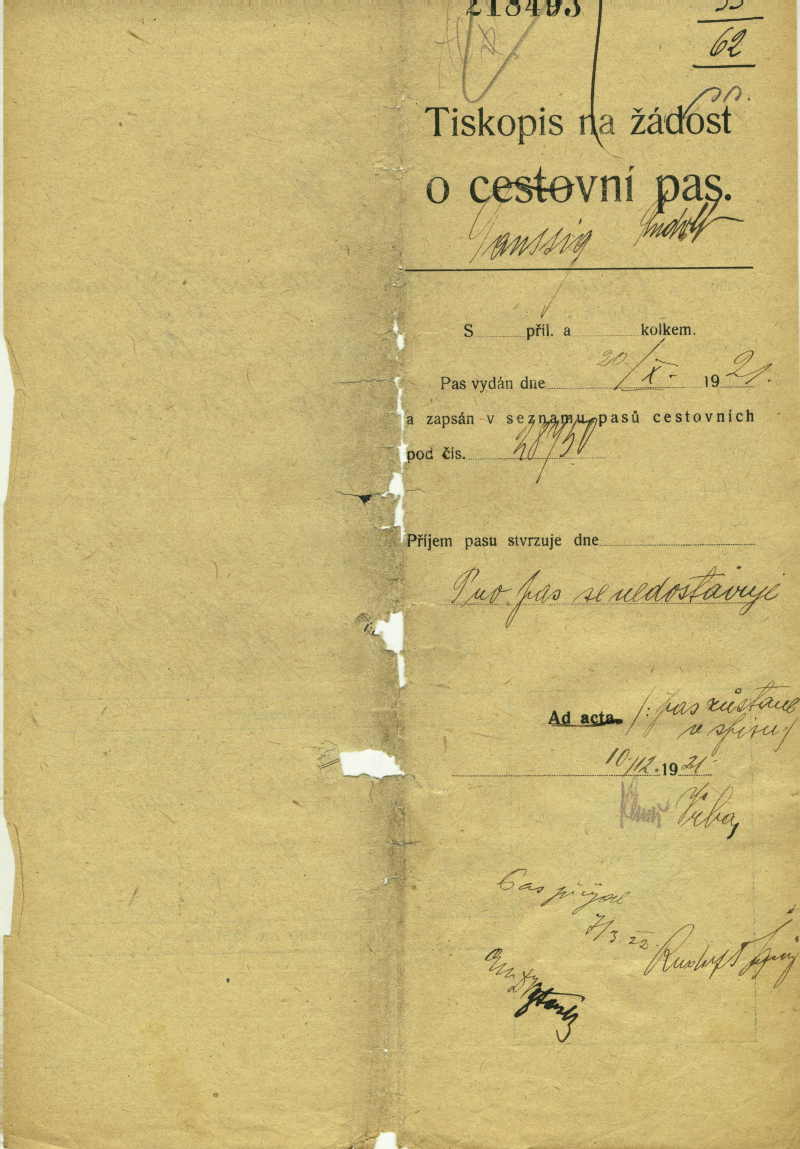 218493
62
Tiskopis na žádost
o cestovní pas.
Taussig Rudolf
S příl. a kolkem.
Pas vydán dne 20/X. 1921.
a zapsán v seznamu pasů cestovních
pod čís. 28750
Příjem pasu stvrzuje dne
Pro pas se nedostavuje
Ad acta /: pas zůstane
ve spisu /
10/12.1921
Vrba,
Pas přijal
7/3 22.
Rudolf